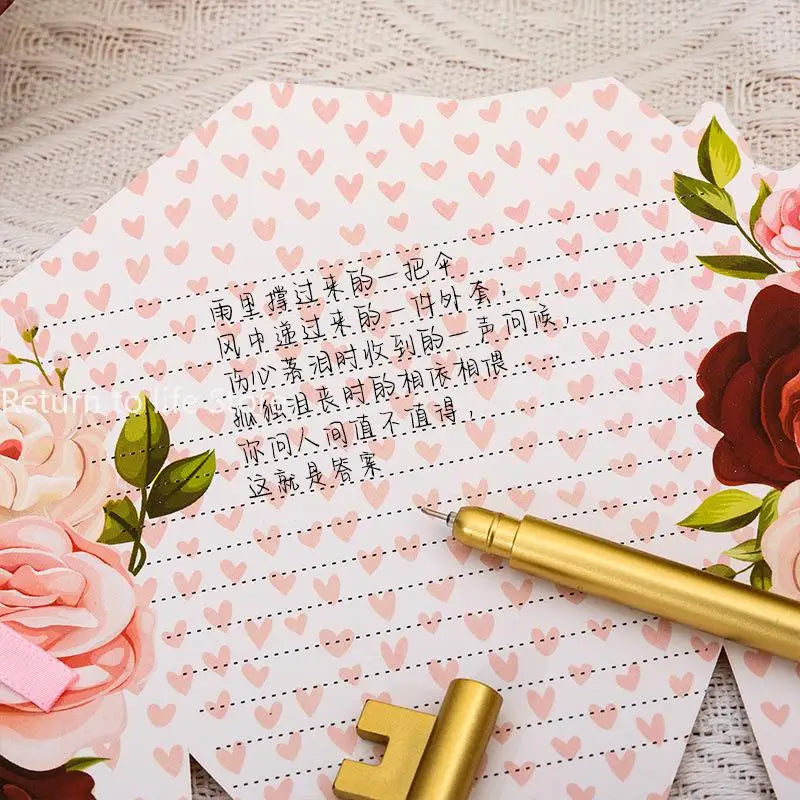 雨里撑过来的一把伞
风中递过来的一件外套，
伤心落泪时收到的一声问候，
孤独沮丧时的相依相偎
你问人间值不值得，
这就是答案
Return to life Store